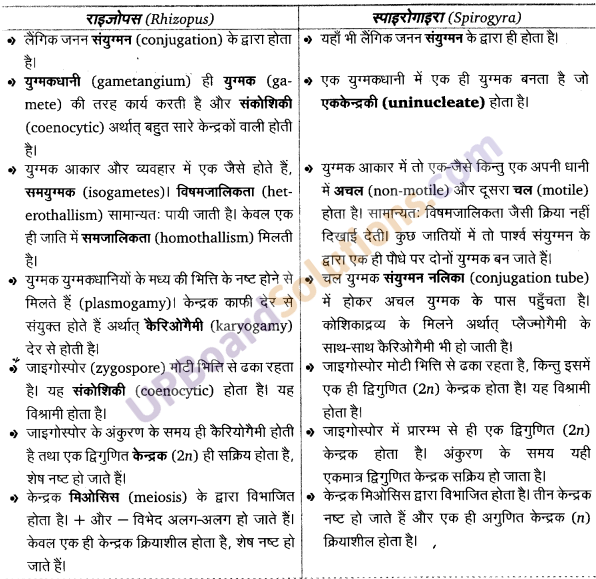 राइजोपस (Rhizopus)
लैंगिक जनन संयुग्मन (conjugation) के द्वारा होता
है।
युग्मकधानी (gametangium) ही युग्मक (ga-
mete) की तरह कार्य करती है और संकोशिकी
(coenocytic) अर्थात् बहुत सारे केन्द्रकों वाली होती
है।
युग्मक आकार और व्यवहार में एक जैसे होते हैं,
समयुग्मक (isogametes)। विषमजालिकता (het-
erothallism) सामान्यतः पायी जाती है। केवल एक
ही जाति में समजालिकता (homothallism) मिलती
है।
युग्मक युग्मकधानियों के मध्य की भित्ति के नष्ट होने से
मिलते हैं (plasmogamy)। केन्द्रक काफी देर से
संयुक्त होते हैं अर्थात् कैरिओगैमी (karyogamy)
देर से होती है।
जाइगोस्पोर (zygospore) मोटी भित्ति से ढका रहता
है। यह संकोशिकी (coenocytic) होता है। यह
विश्रामी होता है।
जाइगोस्पोर के अंकुरण के समय ही कैरियोगैमी होती
है तथा एक द्विगुणित केन्द्रक (2n) ही सक्रिय होता है,
शेष नष्ट हो जाते हैं।
केन्द्रक मिओसिस (meiosis) के द्वारा विभाजित
होता है। + और – विभेद अलग-अलग हो जाते हैं।
केवल एक ही केन्द्रक क्रियाशील होता है, शेष नष्ट हो
जाते हैं।
स्पाइरोगाइरा (Spirogyra)
यहाँ भी लैंगिक जनन संयुग्मन के द्वारा ही होता है।
एक युग्मकधानी में एक ही युग्मक बनता है जो
एककेन्द्रकी (uninucleate) होता है।
युग्मक आकार में तो एक-जैसे किन्तु एक अपनी धानी
में अचल (non-motile) और दूसरा चल (motile)
होता है। सामान्यतः विषमजालिकता जैसी क्रिया नहीं
दिखाई देती। कुछ जातियों में तो पार्श्व संयुग्मन के
द्वारा एक ही पौधे पर दोनों युग्मक बन जाते हैं।
चल युग्मक संयुग्मन नलिका (conjugation tube)
में होकर अचल युग्मक के पास पहुँचता है।
कोशिकाद्रव्य के मिलने अर्थात् प्लैज्मोगैमी के
साथ-साथ कैरिओगैमी भी हो जाती है।
जाइगोस्पोर मोटी भित्ति से ढका रहता है, किन्तु इसमें
एक ही द्विगुणित (2n) केन्द्रक होता है। यह विश्रामी
होता है।
जाइगोस्पोर में प्रारम्भ से ही एक द्विगुणित (2n)
केन्द्रक होता है। अंकुरण के समय यही
एकमात्र द्विगुणित केन्द्रक सक्रिय हो जाता है।
केन्द्रक मिओसिस द्वारा विभाजित होता है। तीन केन्द्रक
नष्ट हो जाते हैं और एक ही अगुणित केन्द्रक (n)
क्रियाशील होता है।
UPBoardSolutions.com